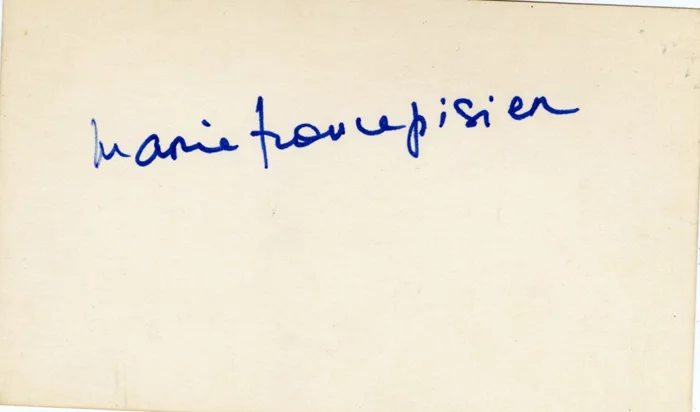 marie france pisier